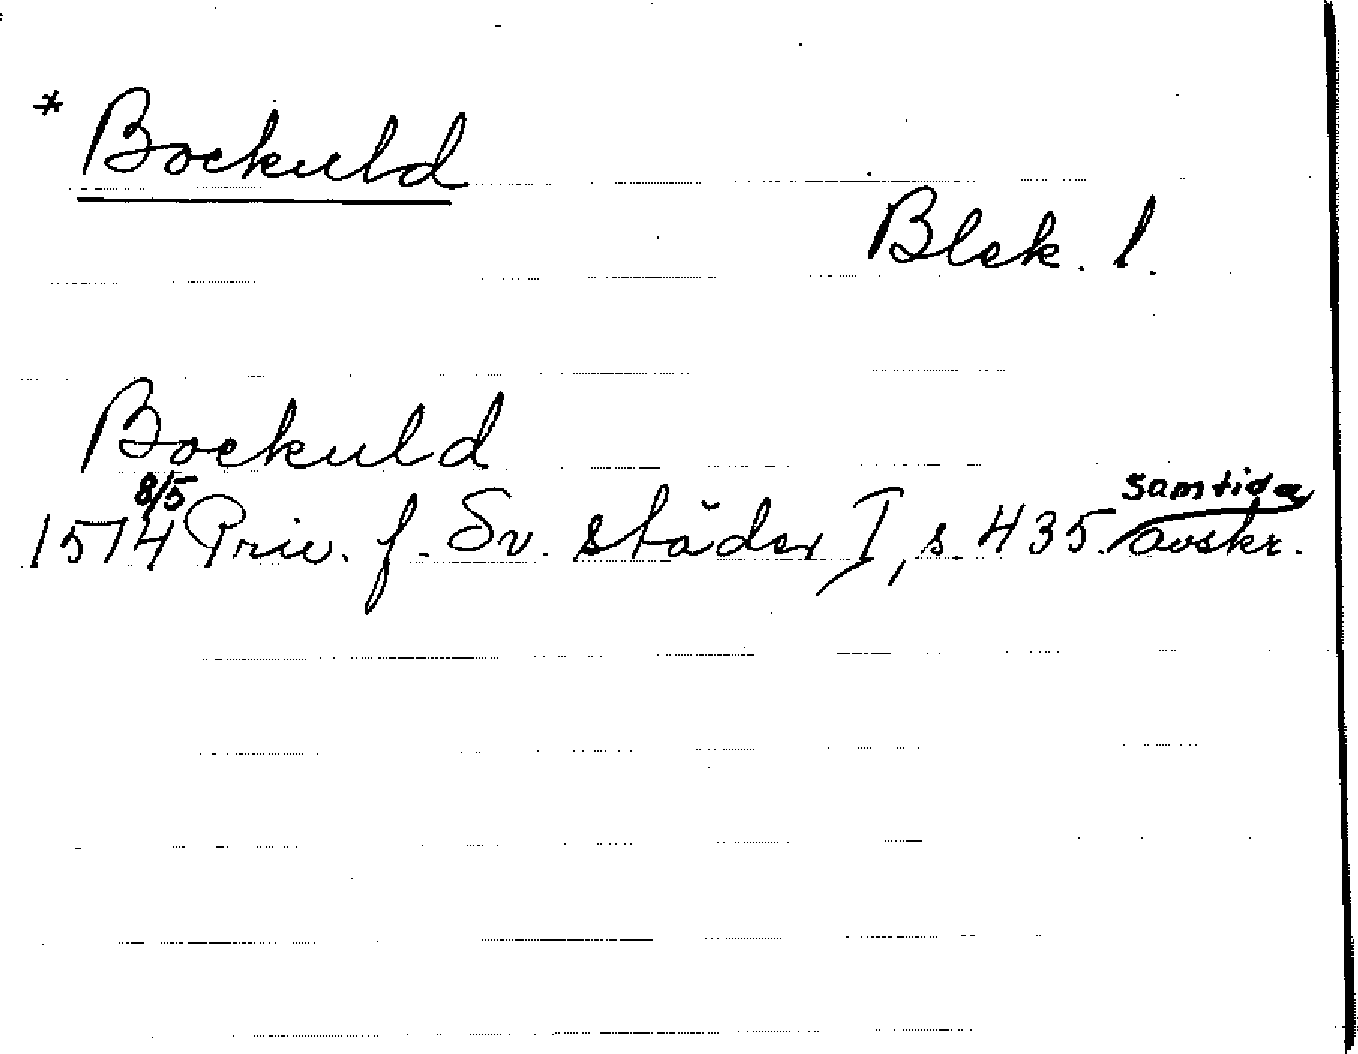 * Bockuld
Blek. l.
Bockuld
8/5 samtida
1514 Priv. f. Sv. städer I, s. 435. avskr.